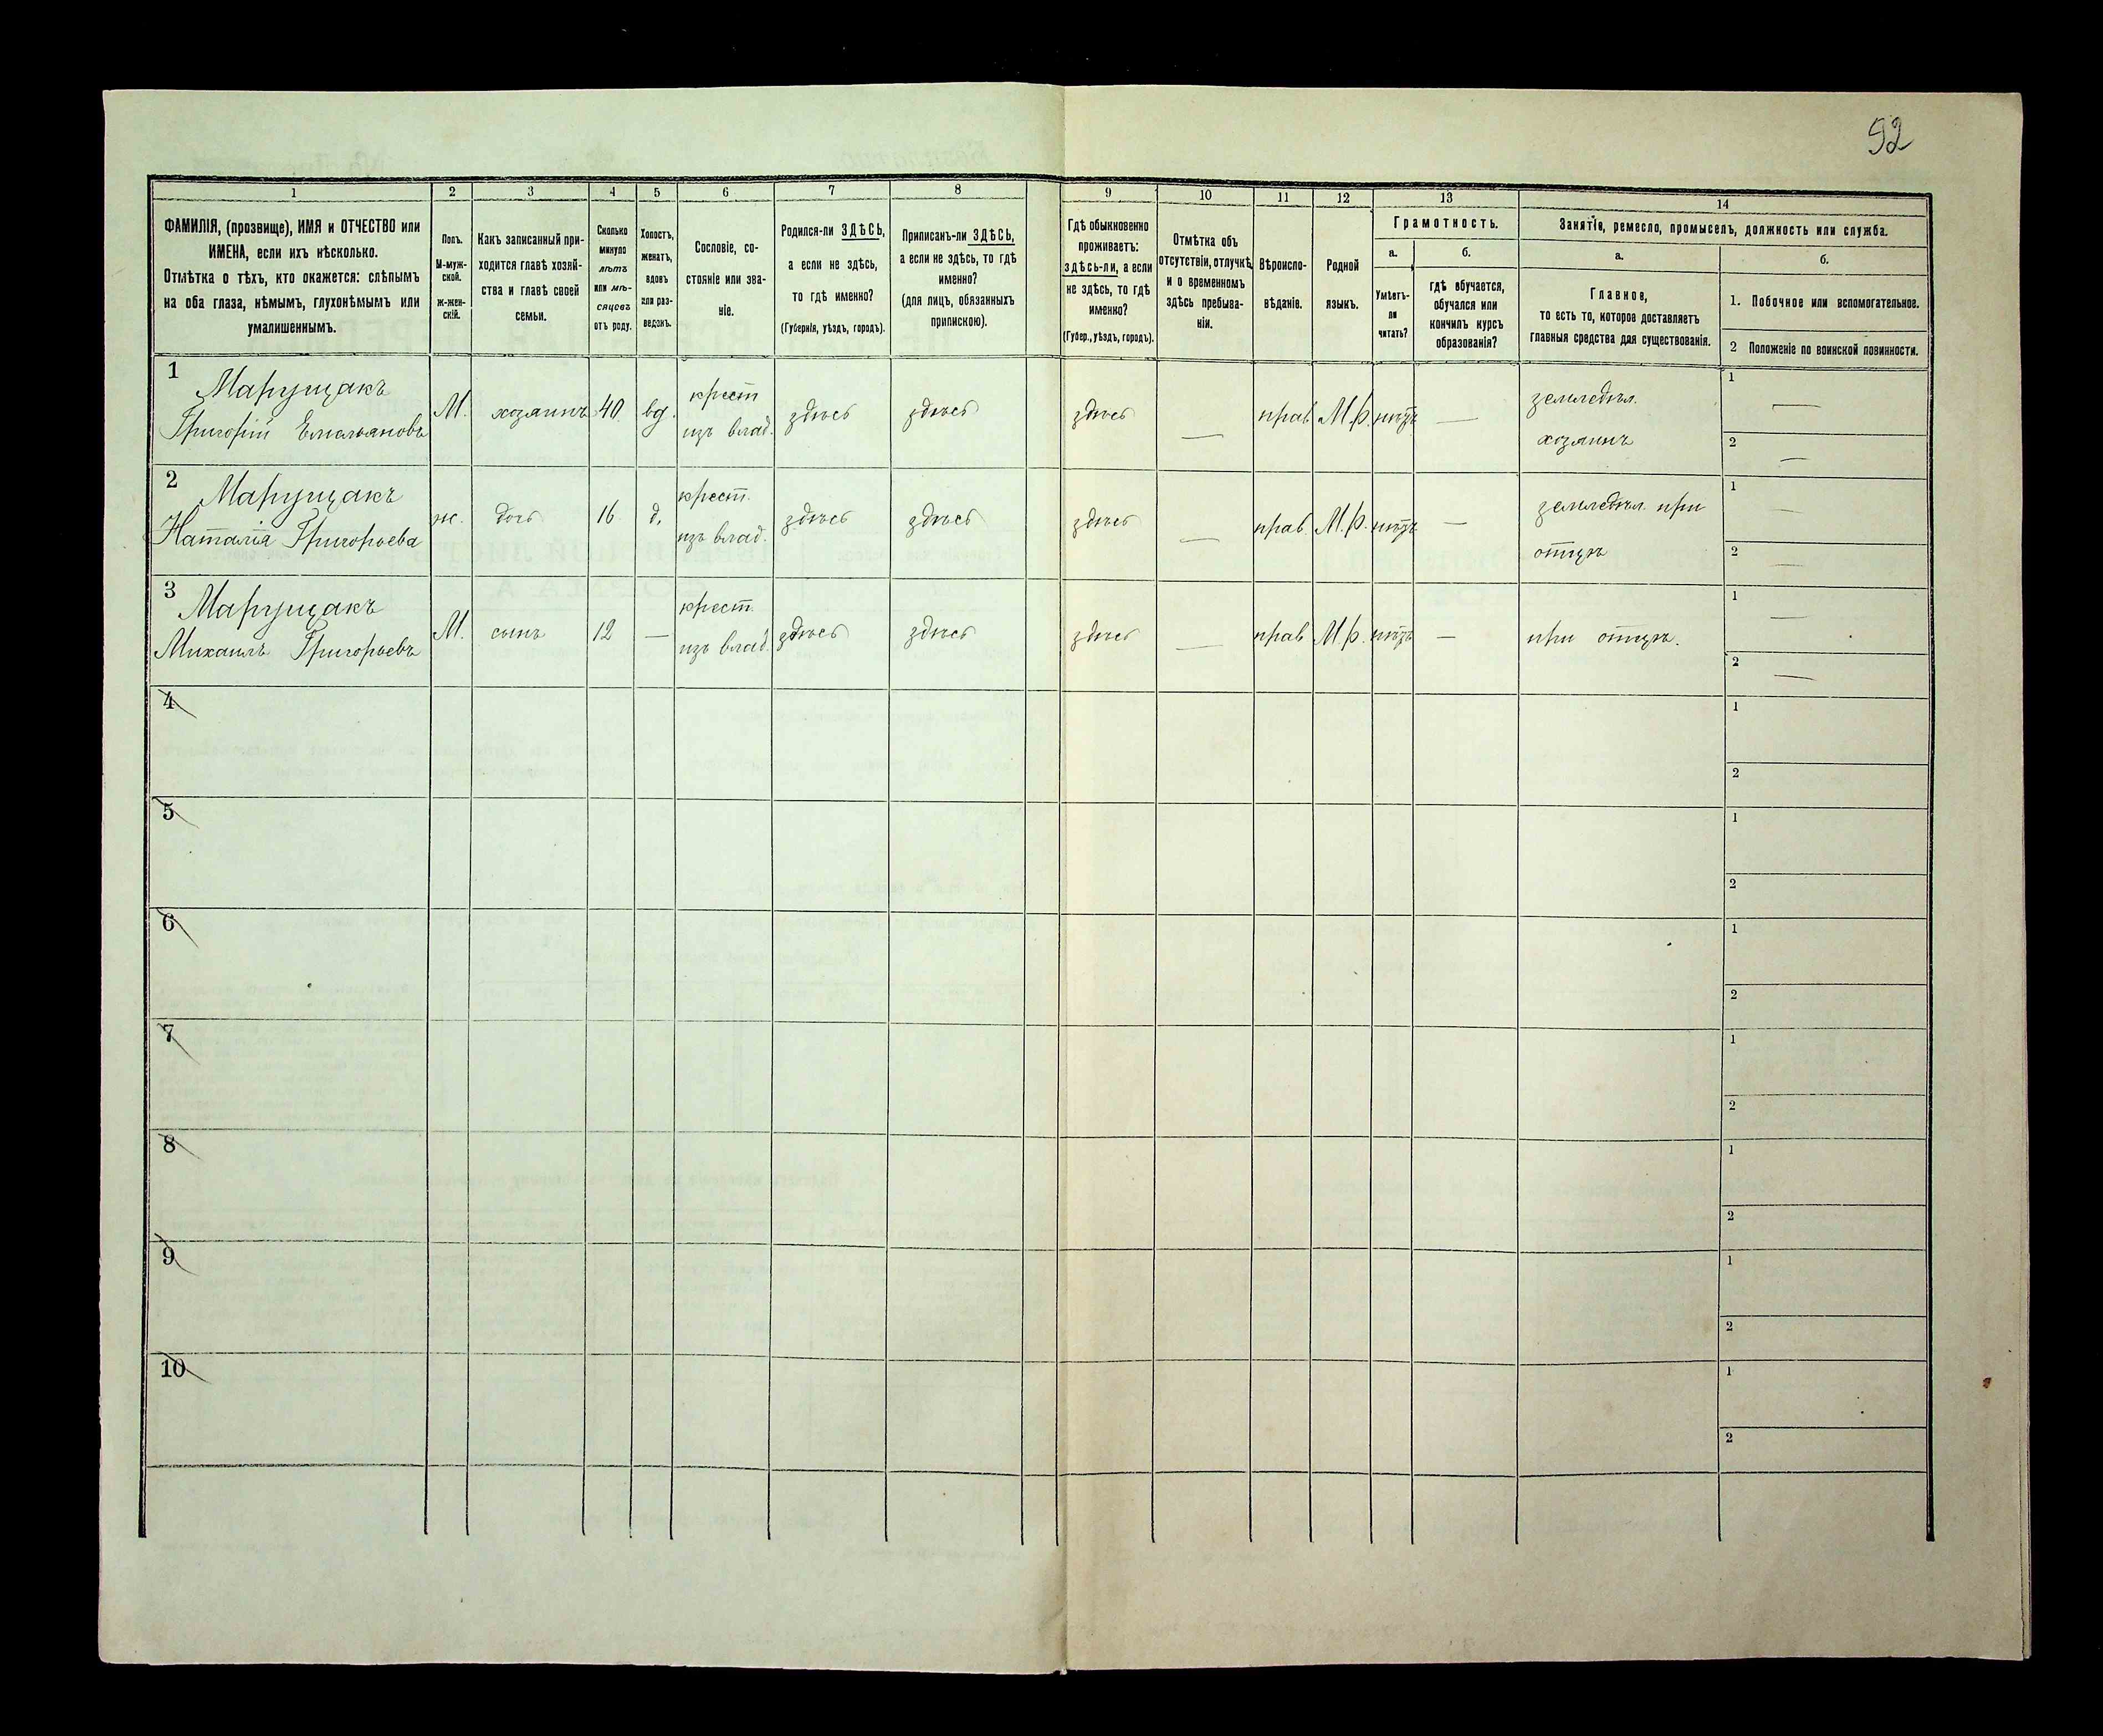 92
1 2 3 4 5 6 7 8 9 10 11 12 13 14
ФАМИЛІЯ, (прозвище), ИМЯ и ОТЧЕСТВО или
ИМЕНА, если ихъ нѣсколько.
Отмѣтка о тѣхъ, кто окажется: слѣпымъ
на оба глаза, нѣмымъ, глухонѣмымъ или
умалишеннымъ.
Полъ.
М-муж-
ской.
ж-жен-
скій.
Какъ записанный при-
ходится главѣ хозяй-
ства и главѣ своей
семьи.
Сколько
минуло
лѣтъ
или мѣ-
сяцевъ
отъ роду.
Холостъ,
женатъ,
вдовъ
или раз-
веденъ.
Сословіе, со-
стояніе или зва-
ніе.
Родился-ли ЗДѢСЬ,
а если не здѣсь,
то гдѣ именно?
(Губернія, уѣздъ, городъ).
Приписанъ-ли ЗДѢСЬ,
а если не здѣсь, то гдѣ
именно?
(для лицъ, обязанныхъ
припискою).
Гдѣ обыкновенно
проживаетъ:
здѣсь-ли, а если
не здѣсь, то гдѣ
именно?
(Губер., уѣздъ, городъ).
Отмѣтка объ
отсутствіи, отлучкѣ
и о временномъ
здѣсь пребыва-
ніи.
Вѣроиспо-
вѣданіе.
Родной
языкъ.
Грамотность.
а.
Умѣетъ-
ли
читать?
б.
гдѣ обучается,
обучался или
кончилъ курсъ
образованія?
Занятіе, ремесло, промыселъ, должность или служба.
а.
Главное,
то есть то, которое доставляетъ
главныя средства для существованія.
б.
1. Побочное или вспомогательное.
2 Положеніе по воинской повинности.
1 Марущакъ
Григорій Емельяновъ М. хозяинъ 40 вд. крест из влад. здѣсь здѣсь здѣсь — прав М.р. нѣтъ — земледѣл. хозяинъ 1 — 2 —
2 Марущакъ
Наталія Григорьева ж. дочь 16 д. крест. изъ влад. здѣсь здѣсь здѣсь — прав. М.р. нѣтъ — земледѣл. при отцѣ 1 — 2 —
3 Марущакъ
Михаилъ Григорьевъ М. сынъ 12 — крест. изъ влад. здѣсь здѣсь здѣсь — прав М.р. нѣтъ — при отцѣ. 1 — 2 —
4 1 2
5 1 2
6 1 2
7 1 2
8 1 2
9 1 2
10 1 2